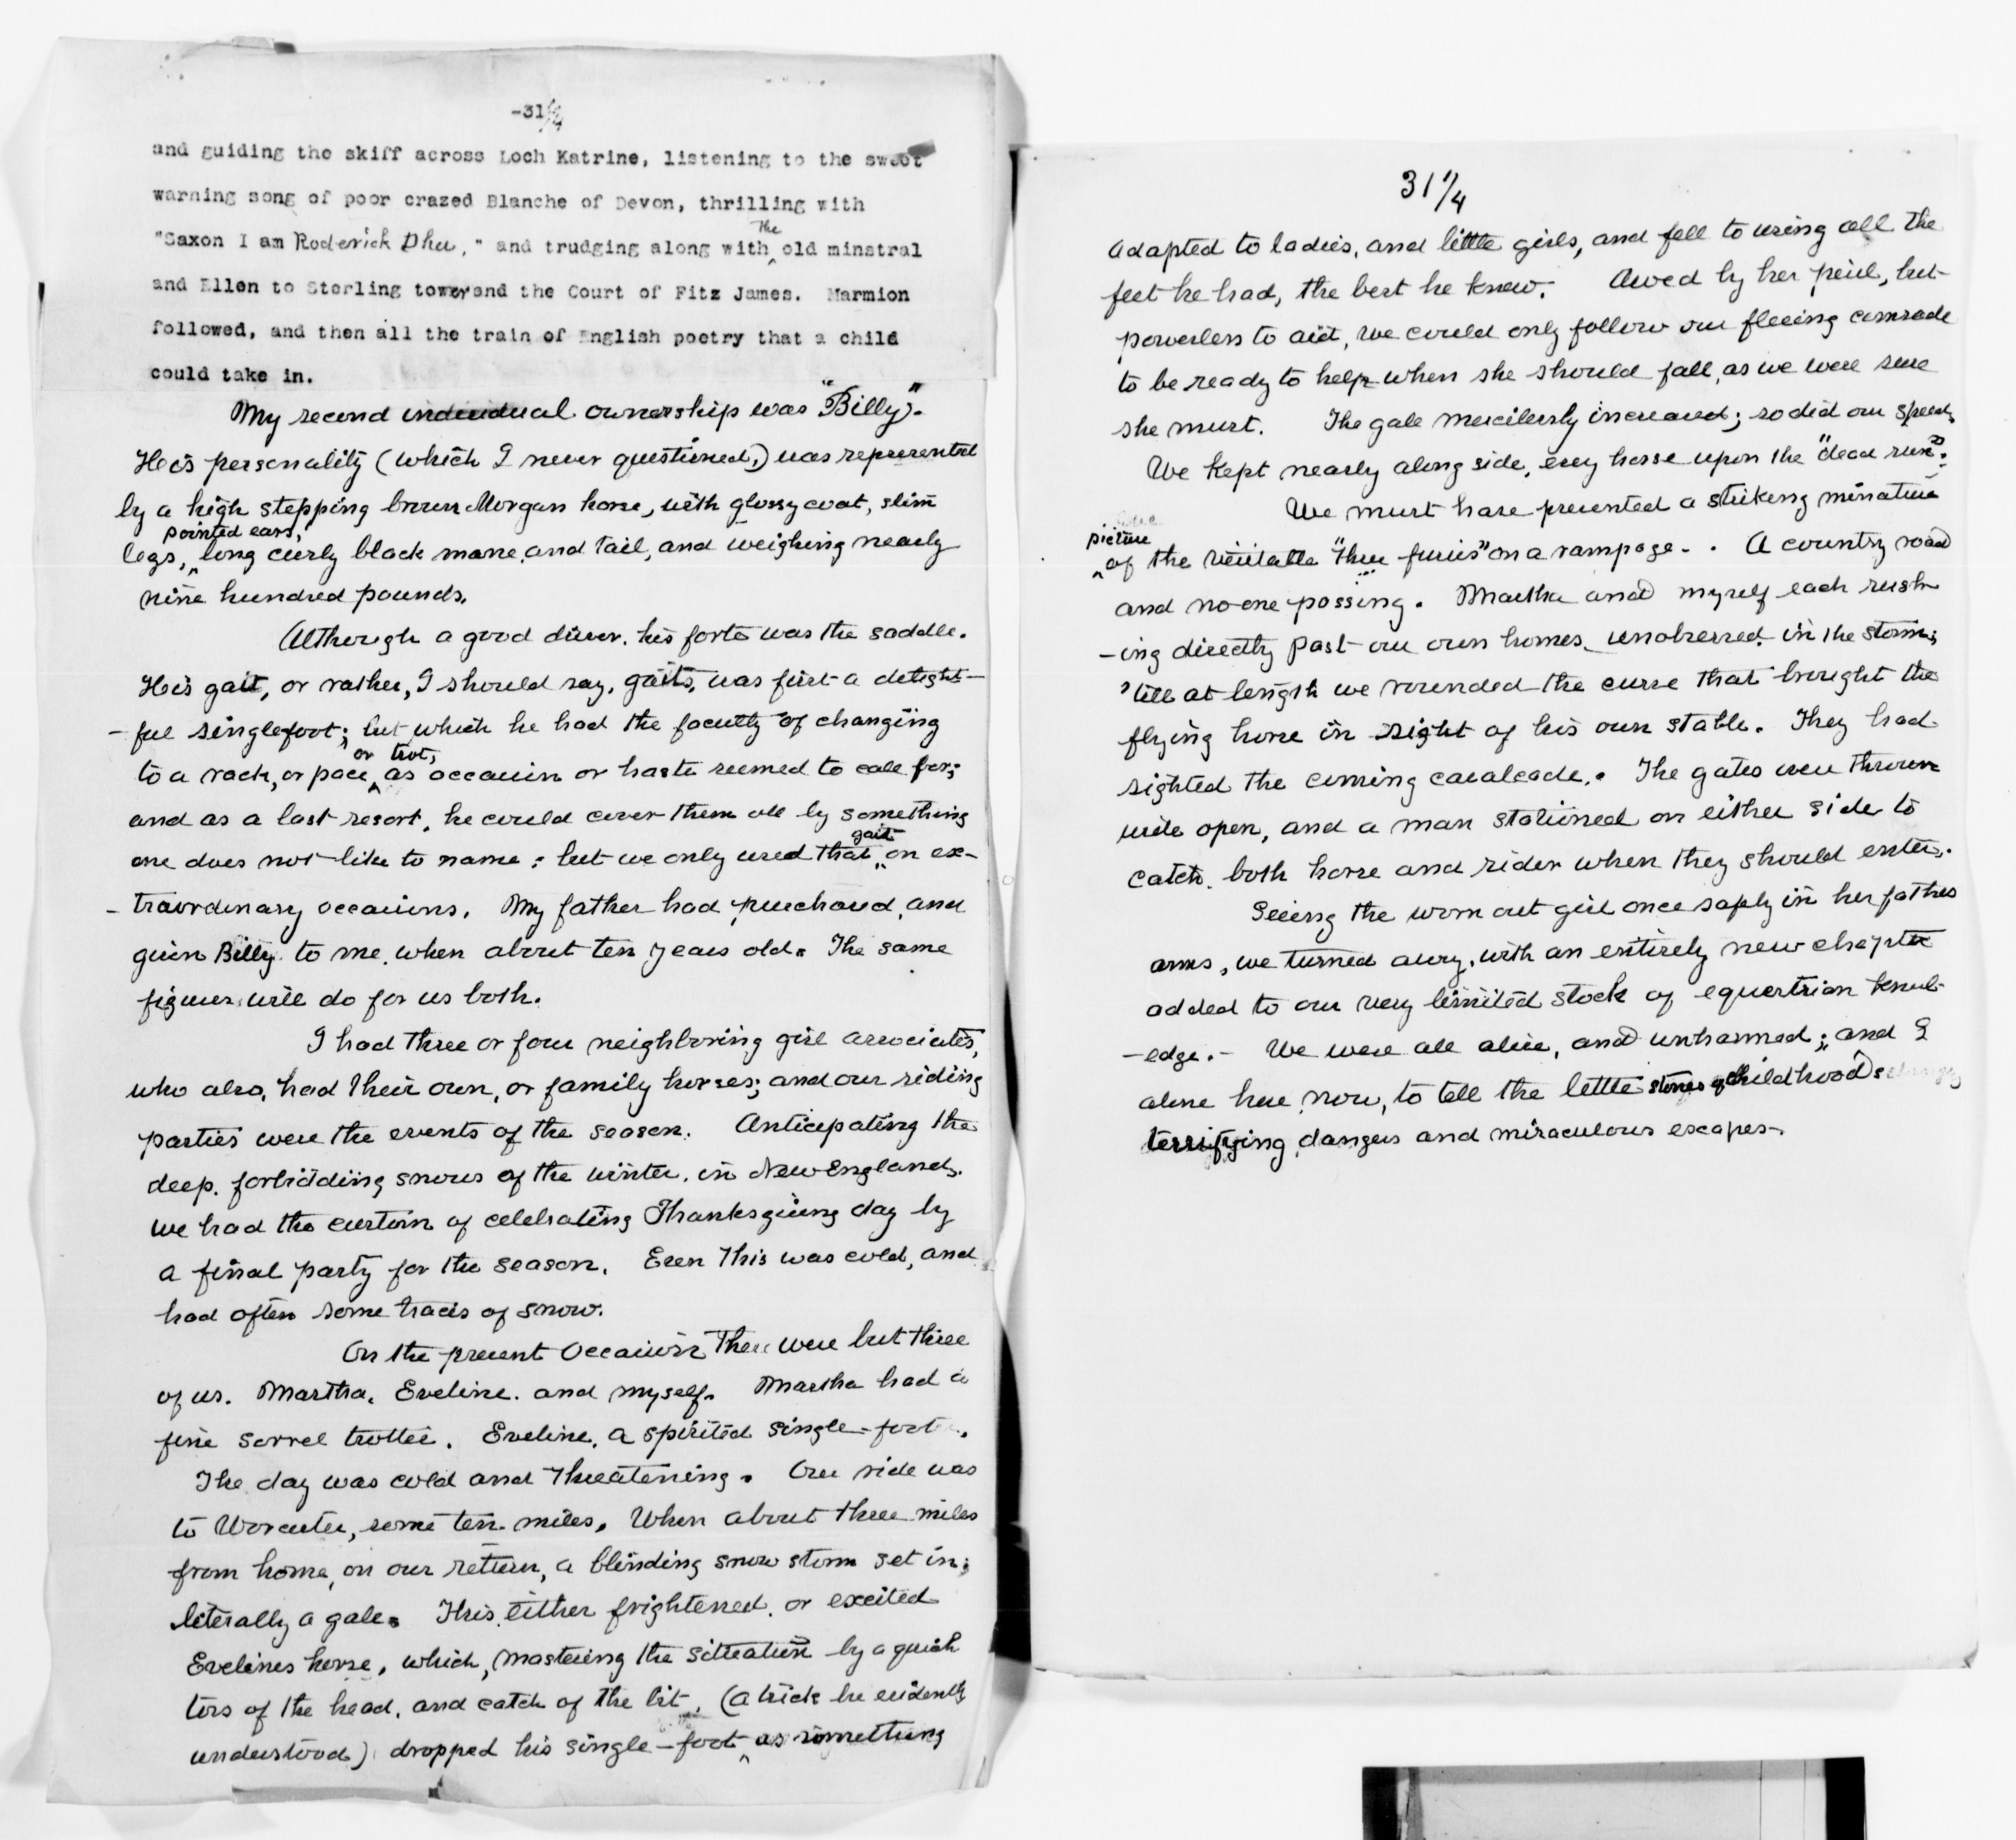 -31 1/4
and guiding the skiff across Loch Katrine, listening to the sweet
warning song of poor crazed Blanche of Devon, thrilling with
"Saxon I am Roderick Dhu," and trudging along with the old minstral
and Ellen to Sterling tower and the Court of Fitz James. Marmion
followed, and then all the train of English poetry that a child
could take in.
My second individual ownership was "Billy".
His personality (which I never questioned,) was represented
by a high stepping brown Morgan horse, with glossy coat, slim
legs, pointed ears, long curly black mane and tail, and weighing nearly
nine hundred pounds.
Although a good driver, his forte was the saddle.
His gait, or rather, I should say, gaits, was first a delight-
-ful singlefoot; but which he had the faculty of changing
to a rack, or pace, or trot, as occasion or haste seemed to call for;
and as a last resort, he could cover them all by something
one does not like to name; but we only used that gait on ex-
-traordinary occasions. My father had purchased, and
given Billy to me, when about ten years old. The same
figures will do for us both.
I had three or four neighboring girl associates,
who also, had their own, or family horses; and our riding
parties were the events of the season. Anticipating the
deep, forbidding snows of the winter, in New England,
we had the custom of celebrating Thanksgiving day by
a final party for the season. Even this was cold, and
had often some traces of snow.
On the present Occasion There were but three
of us. Martha, Eveline. and myself. Martha had a
fine sorrel trotter. Eveline, a spirited single-footer.
The day was cold and threatening. Our ride was
to Worcester, some ten miles. When about three miles
from home, on our return, a blinding snow storm set in;
literally a gale. This, either frightened, or excited
Evelines horse, which, mastering the situation by a quick
toss of the head, and catch of the bit, (a trick he evidently
understood) dropped his single-foot as something
31 1/4
adapted to ladies, and little girls, and fell to using all the
feet he had, the best he knew. Awed by her peril, but
powerless to aid, we could only follow our fleeing comrade
to be ready to help when she should fall, as we were sure
she must. The gale mercilessly increased; so did our speed,
We kept nearly along side, every horse upon the "dead run".
We must have presented a striking minature
picture of the veritable "three furies" on a rampage. . A country road
and no-one passing. Martha and myself each rush
-ing directly past our own homes, unobserved in the storm;
'till at length we rounded the curve that brought the
flying horse in sight of his own stable. They had
sighted the coming cavalcade. The gates were thrown
wide open, and a man stationed on either side to
catch both horse and rider when they should enter.
Seeing the worn out girl once safely in her fathers
arms, we turned away, with an entirely new chapter
added to our very limited stock of equestrian knowl-
-edge. - We were all alive, and unharmed; and I
alone here, now, to tell the little stories of childhoods
terrifying dangers and miraculous escapes-